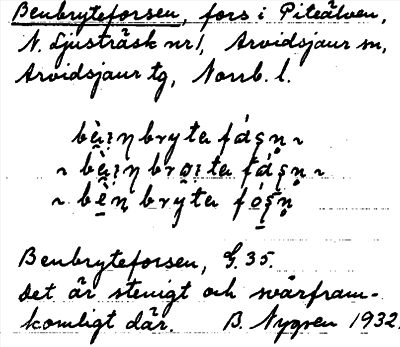 Benbryteforsen, fors i Piteälven,
N. Ljusträsk nr 1, Arvidsjaur sn,
Arvidsjaur tg, Norrb. l.
bryta
~
~ ~
~ bryta
Benbryteforsen, G. 35.
Det är stenigt och svårfram-
komligt där. B. Nygren 1932.